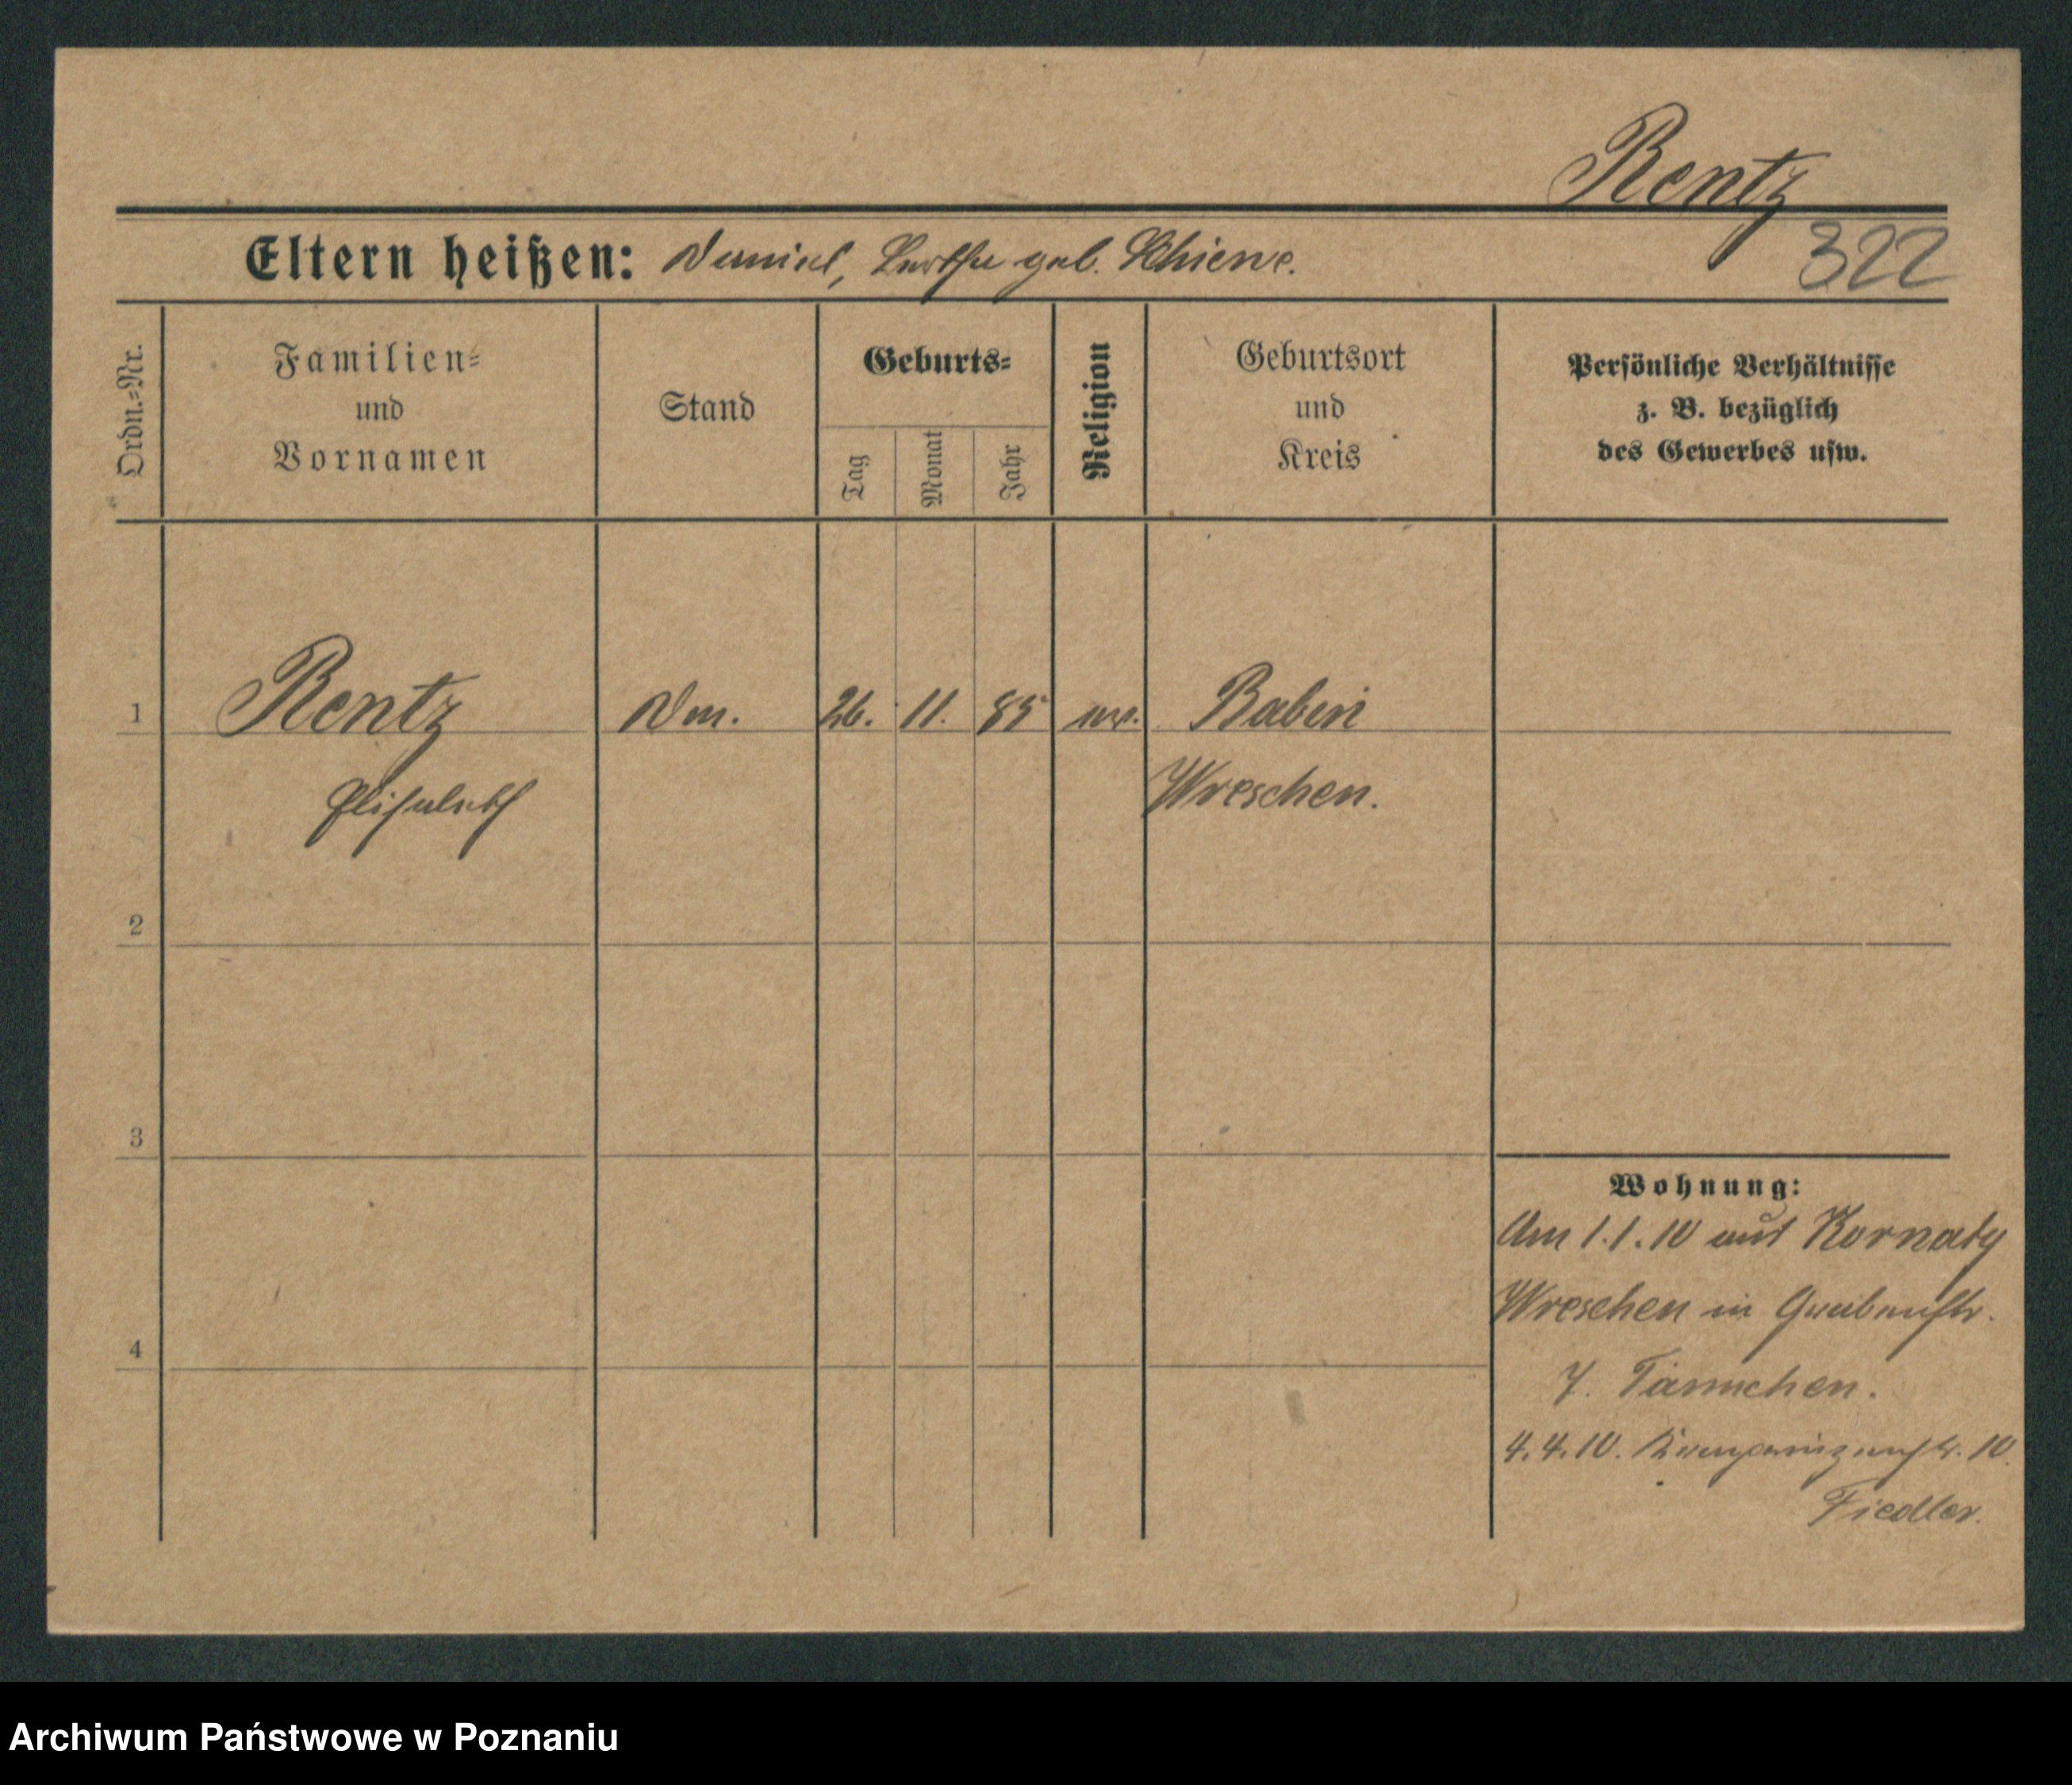 Rentz
322
Eltern heißen: Daniel, Bertha geb. Schiewe.
Ordn.=Nr.
Familien=
und
Vornamen
Stand
Geburts=
Tag
Monat
Jahr
Religion
Geburtsort
und
Kreis
Persönliche Verhältnisse
z. B. bezüglich
des Gewerbes usw.
1 Rentz 26. 11. 85 ev. Babin
Elisabeth Wreschen.
2
3
4
Wohnung:
Am 1.1.10 aus Kornaty
Wreschen in Grabenstr.
7. Tännchen.
4.4.10. 10.
Fiedler.
Archiwum Państwowe w Poznaniu